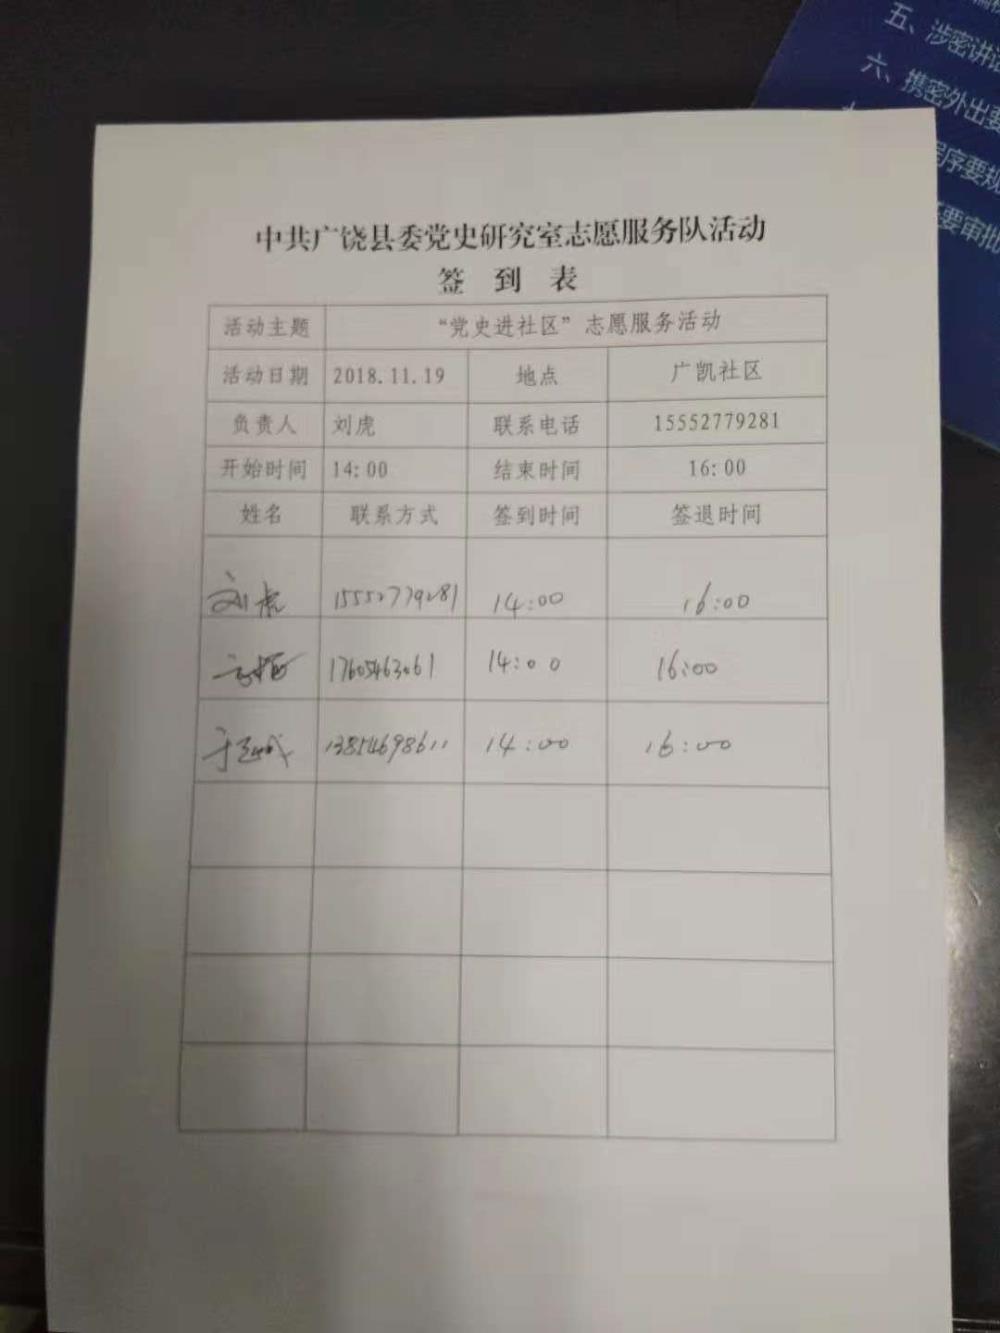 五、涉密讲话
六、携密外出要
程序要规
要审批
中共广饶县委党史研究室志愿服务队活动
签 到 表
活动主题 “党史进社区”志愿服务活动
活动日期 2018.11.19 地点 广凯社区
负责人 刘虎 联系电话 15552779281
开始时间 14:00 结束时间 16:00
姓名 联系方式 签到时间 签退时间
刘虎 15552779281 14:00 16:00
17605463061 14:00 16:00
13854698611 14:00 16:00